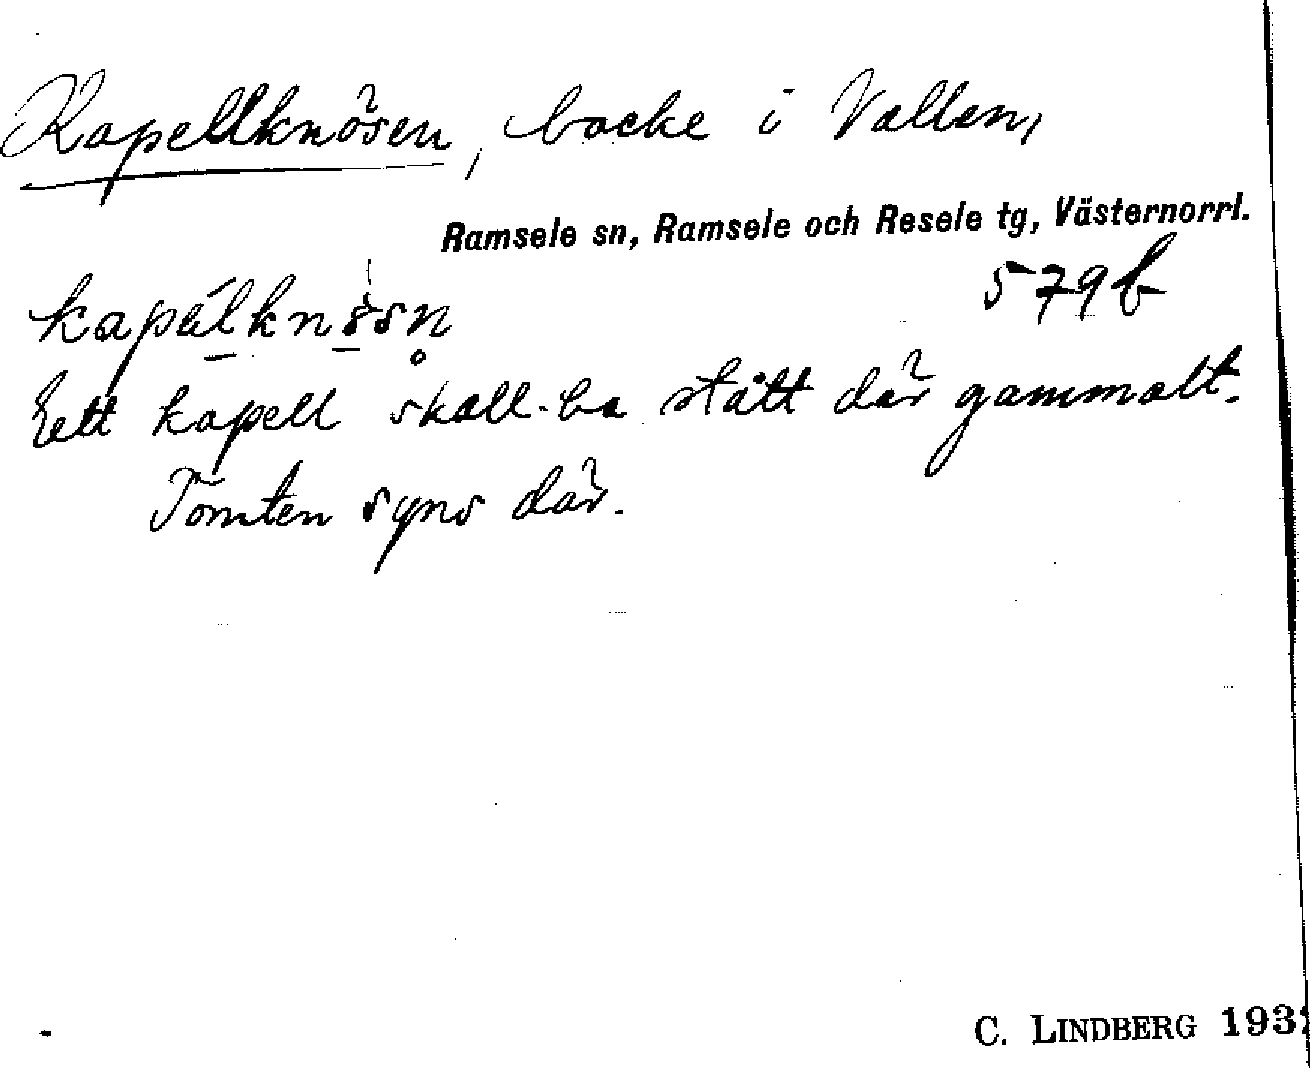 Kapellknösen, backe i Vallen,
Ramsele sn, Ramsele och Resele tg, Västernorrl.
579b
Ett kapell skall ha stått där gammalt.
Tomten syns där.
C. LINDBERG